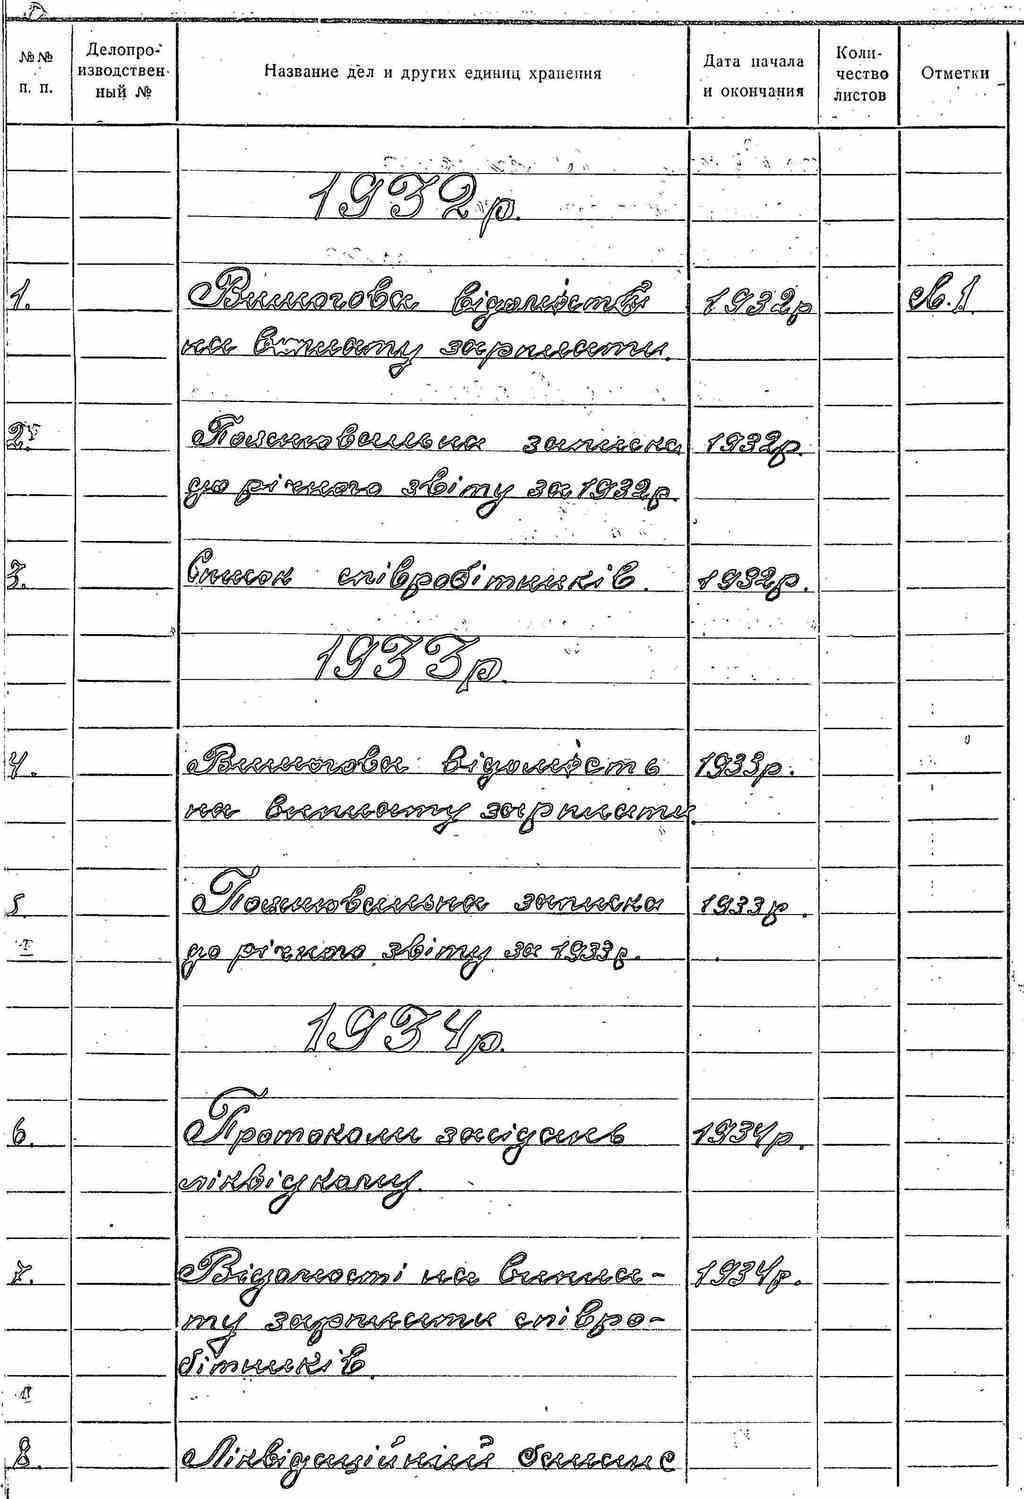 №№ п. п. Делопроизводственный № Название дел и других единиц хранения Дата начала и окончания Количество листов Отметки
1932р.
1. Вимогова відомість 1932р св. 1.
на виплату зарплати.
2. Пояснювальна записка 1932р.
до річного звіту за 1932р.
3. Список співробітників. 1932р.
1933р.
4. Вимогова відомість 1933р.
на виплату зарплати.
5. Пояснювальна записка 1933р.
до річного звіту за 1933р.
1934р.
6. Протоколи засідань 1934р.
ліквідкому.
7. Відомості на випла- 1934р.
ту зарплати співро-
бітників.
8. Ліквідаційний баланс